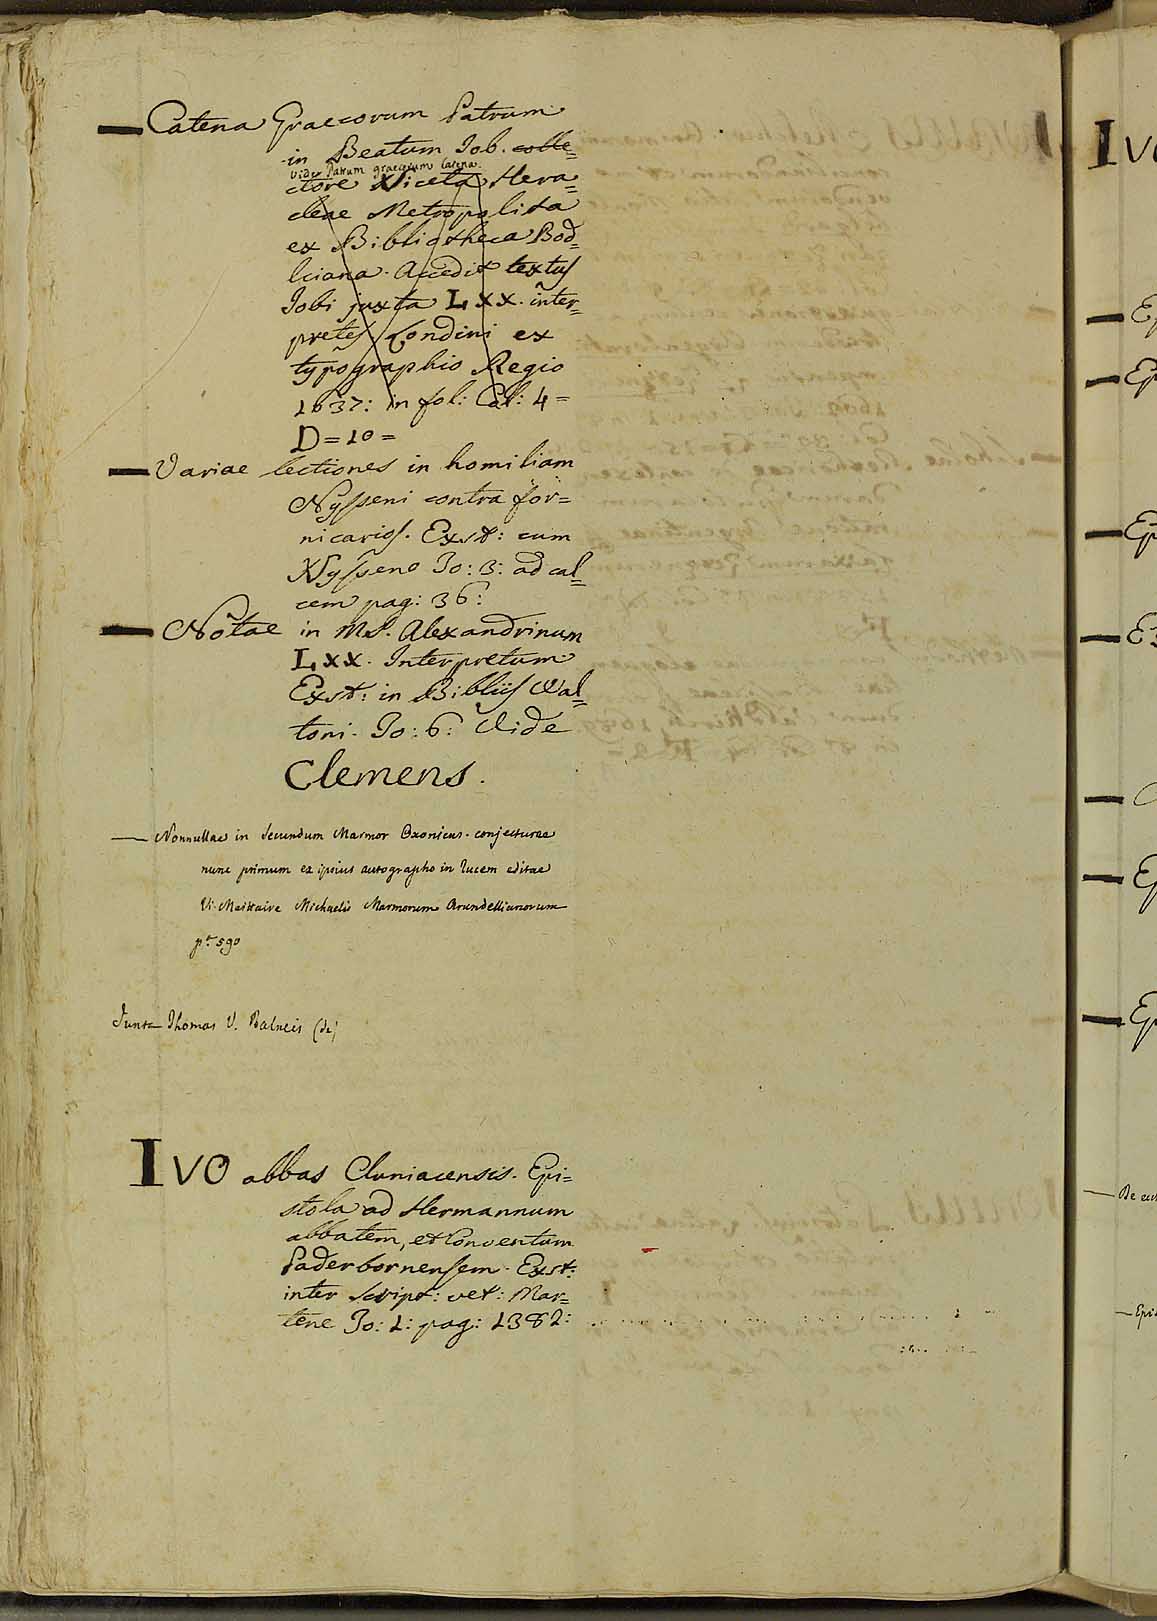 — Catena Graecorum Patrum
in Beatum Iob. colle=
Vide Patrum graecorum Catena.
ctore Niceta Hera=
cleae Metropolita
ex Bibliotheca Bod=
leiana. Accedit textus
Iobi juxta LXX. inter=
pretes Londini ex
typographio Regio
1637: in fol: Col: 4=
D=10=
— Variae lectiones in homiliam
Nysseni contra for=
nicarios. Exst: cum
Nysseno To: 3: ad cal=
cem pag: 36:
— Notae in MS. Alexandrinum
LXX. Interpretum
Exst: in Bibliis Wal=
toni. To: 6: Vide
Clemens.
— Nonnullae in secundum Marmor Oxonicus. conjecturae
nunc primum ex ipsius autographo in lucem editae
Vi. Maittaire Michaelis Marmorum Arundellianorum
p.ª 590
Iunta Thomas V. Balneis (de)
IVO abbas Cluniacensis. Epi=
stola ad Hermannum
abbatem, et Conventum
Paderbornensem. Exst:
inter Script: vet: Mar=
tene To: 1: pag: 1382:
IV
Ep
Ep
Ep
Ep
Ep
De
Epi